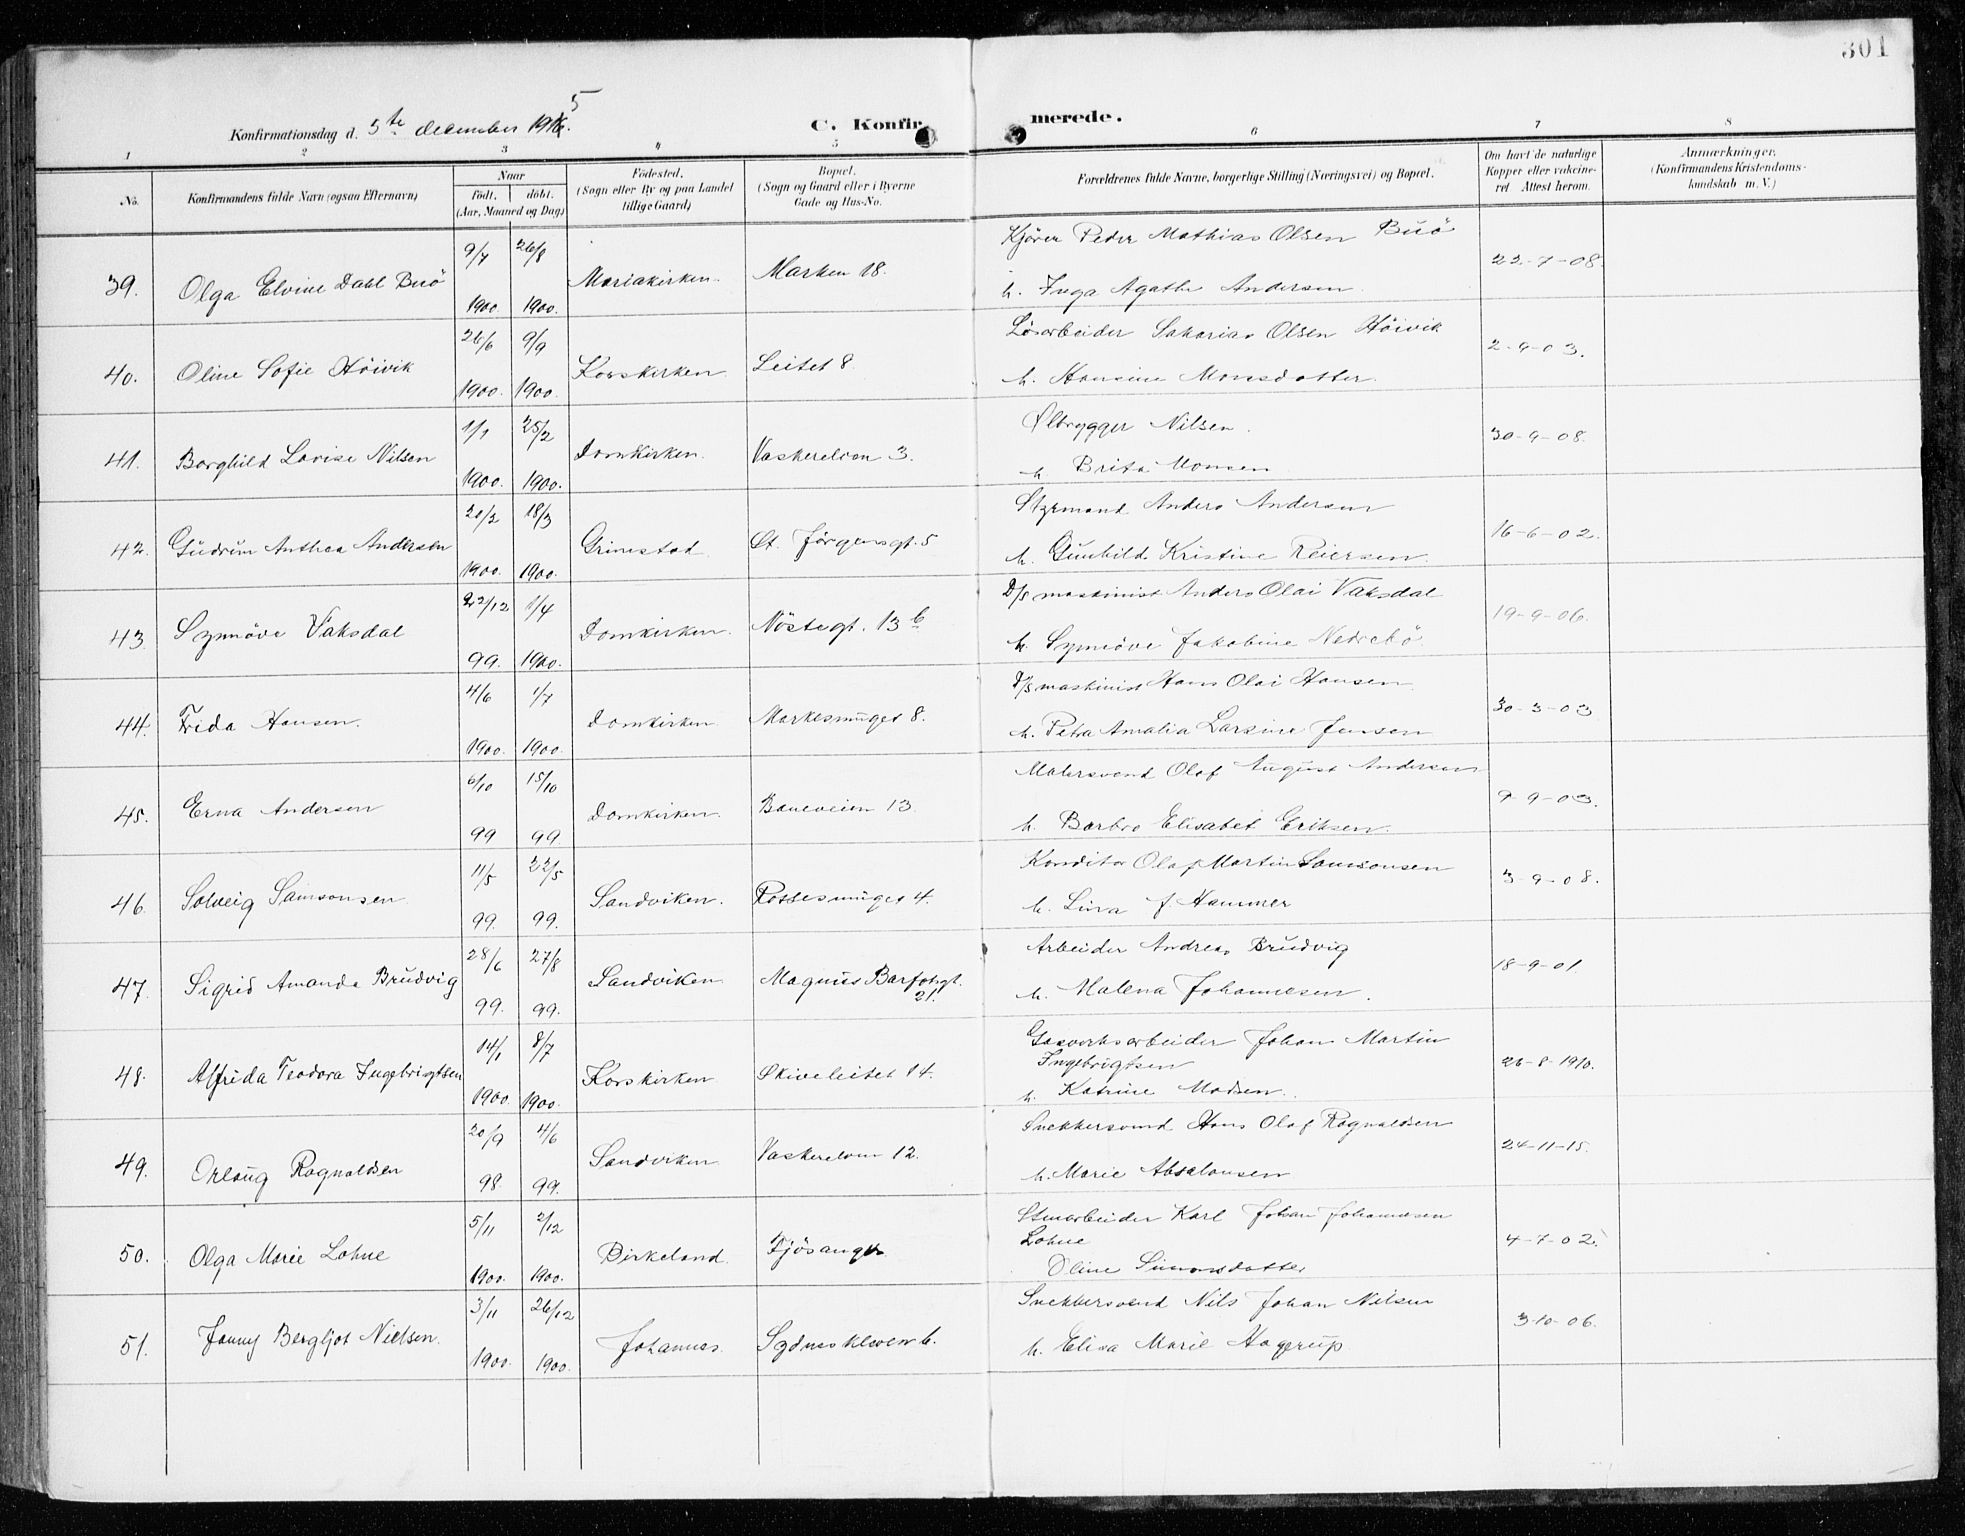 301
Konfirmationsdag d. 5te december 1915.
C. Konfirmerede.
1 2 3 4 5 6 7 8
No.
Konfirmandens fulde Navn (ogsaa Efternavn)
Naar
Födt. döbt.
(Aar, Maaned og Dag)
Födested.
(Sogn eller By og paa Landet
tillige Gaard)
Bopæl.
(Sogn og Gaard eller i Byerne
Gade og Hus-No.
Forældrenes fulde Navne, borgerlige Stilling (Næringsvei) og Bopæl.
Om havt de naturlige
Kopper eller vakcine-
ret. Attest herom.
Anmærkninger.
(Konfirmandens Kristendoms-
kundskab m. V.)
39. Olga Elvine Dahl Buö 9/7 1900. 26/8 1900. Mariakirken. Marken 18. Kjörer Peder Mathias Olsen Buö
h. Inga Agathe Andersen. 22-7-08.
40. Oline Sofie Höivik 26/6 1900. 9/9 1900. Korskirken. Leitet 8. Lösarbeider Sakarias Olsen Höivik
h. Hansine Monsdatter. 2-9-03.
41. Borghild Lovise Nilsen 1/1 1900. 25/2 1900. Domkirken. Vaskerelven 3. Ølbrygger Nilsen.
h Brita Monsen 30-9-08.
42. Gudrun Anthea Andersen 20/2 1900. 18/3 1900. Grimestad St. Jörgensgt. 5 Styrmand Anders Andersen
h. Gunhild Kristine Reiersen. 16-6-02.
43. Synnöve Vaksdal 22/12 99. 1/4 1900. Domkirken. Nöstegt. 13 b D/s maskinist Anders Olai Vaksdal
h. Synnöve Jakobine Nedrebö. 19-9-06.
44. Frida Hansen. 4/6 1900. 1/7 1900. Domkirken. Markesmuget 8. D/s maskinist Hans Olai Hansen.
h. Petra Amalia Larsine Jensen 30-3-03
45. Erna Andersen 6/10 99 15/10 99 Domkirken. Baneveien 13. Malersvend Olaf August Andersen
h. Barbro Elisabet Eriksen. 9-9-03.
46. Solveig Samsonsen. 11/5 99. 22/5 99. Sandviken. Rottesmuget 4. Konditor Olaf Martin Samsonsen
h. Lina f. Hammer 3-9-08.
47. Sigrid Amanda Brudvig 28/6 99. 27/8 99. Sandviken. Magnus Barfotsgt.
21. Arbeider Andreas Brudvig
h. Malena Johannesen. 18-9-01.
48. Alfrida Teodora Ingebrigtsen 14/1 1900. 8/7 1900. Korskirken. Skiveleitet 14. Gasverksarbeider Johan Martin
Ingebrigtsen
h. Katrine Madsen. 26-8-1910.
49. Orlaug Ragnaldsen 20/9 98. 4/6 99. Sandviken. Vaskerelven 12. Snekkersvend Hans Olaf Ragnaldsen
h. Marie Absalonsen 24-11-15.
50. Olga Marie Lohne 5/11 1900. 2/12 1900. Birkeland. Fjösanger Stenarbeider Karl Johan Johannesen
Lohne
Oline Simonsdatter 4-7-02.
51. Jenny Bergljot Nielsen. 3/11 1900. 26/12 1900. Johannes. Sydneskleven 6. Snekkersvend Nils Johan Nilsen
h. Elisa Marie Hagerup. 3-10-06.